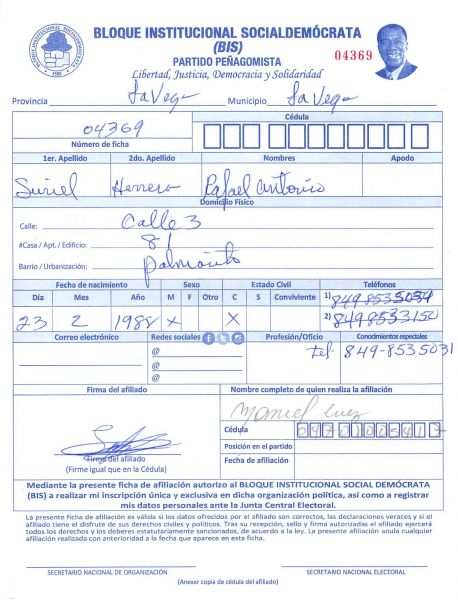 BLOQUE INSTITUCIONAL SOCIALDEMÓCRATA
(BIS)
PARTIDO PEÑAGOMISTA
04369
Libertad, Justicia, Democracia y Solidaridad
Provincia La Vega Municipio La Vega
04369 Cédula
Número de ficha
1er. Apellido 2do. Apellido Nombres Apodo
Suriel Herrera Rafael Antonio
Domicilio Físico
Calle: Calle 3
#Casa / Apt. / Edificio: 81
Barrio / Urbanización: Palmarito
Fecha de nacimiento Sexo Estado Civil Teléfonos
Día Mes Año M F Otro C S Conviviente 1) 849 8535034
23 2 1988 X X 2) 849 8533150
Correo electrónico Redes sociales Profesión/Oficio Conocimientos especiales
@ tel. 849-8535031
@
@
Firma del afiliado Nombre completo de quien realiza la afiliación
Manuel
Cédula 04701005417
Posición en el partido
Firma del afiliado Fecha de afiliación
(Firme igual que en la Cédula)
Mediante la presente ficha de afiliación autorizo al BLOQUE INSTITUCIONAL SOCIAL DEMÓCRATA
(BIS) a realizar mi inscripción única y exclusiva en dicha organización política, así como a registrar
mis datos personales ante la Junta Central Electoral.
La presente ficha de afiliación es válida si los datos ofrecidos por el afiliado son correctos, las declaraciones veraces y si el
afiliado tiene el disfrute de sus derechos civiles y políticos. Tras su recepción, sello y firma autorizadas el afiliado ejercerá
todos los derechos y los deberes estatutariamente sancionados, de acuerdo a la ley. La presente afiliación anula cualquier
afiliación realizada con anterioridad a la fecha que aparece en esta ficha.
SECRETARIO NACIONAL DE ORGANIZACIÓN SECRETARIO NACIONAL ELECTORAL
(Anexar copia de cédula del afiliado)